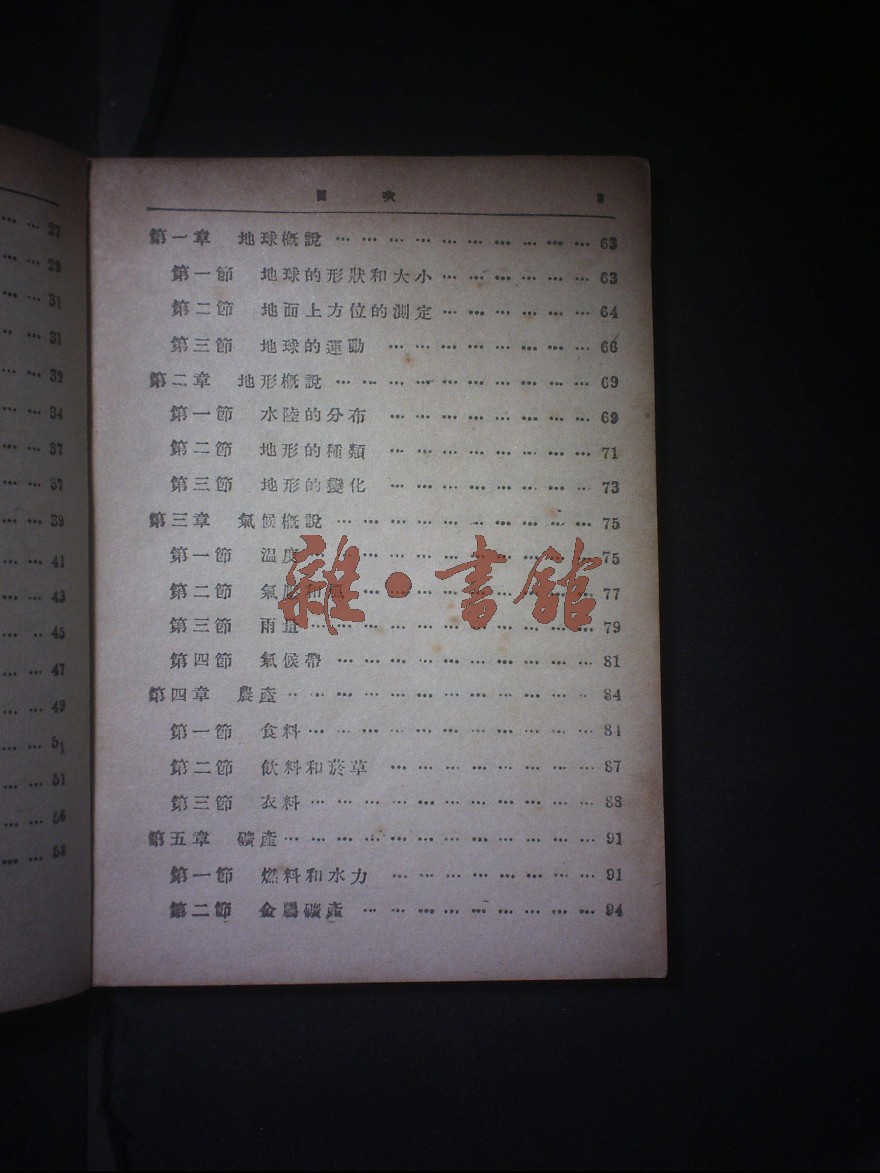 27
29
31
31
32
34
37
37
39
41
43
45
47
49
51
51
56
58
目 次
第一章 地球概說 … … … … … … … … … … 63
第一節 地球的形狀和大小 … … … … … … 63
第二節 地面上方位的測定 … … … … … … 64
第三節 地球的運動 … … … … … … … … 66
第二章 地形概說 … … … … … … … … … … 69
第一節 水陸的分布 … … … … … … … … 69
第二節 地形的種類 … … … … … … … … 71
第三節 地形的變化 … … … … … … … … 73
第三章 氣候概說 … … … … … … … … … … 75
第一節 溫度 … … … … … … … … … … … 75
第二節 氣壓和風 … … … … … … … … … 77
第三節 雨量 … … … … … … … … … … … 79
第四節 氣候帶 … … … … … … … … … … 81
第四章 農產 … … … … … … … … … … … … 84
第一節 食料 … … … … … … … … … … … 84
第二節 飲料和菸草 … … … … … … … … 87
第三節 衣料 … … … … … … … … … … … 88
第五章 礦產 … … … … … … … … … … … … 91
第一節 燃料和水力 … … … … … … … … 91
第二節 金屬礦產 … … … … … … … … … 94
雜·書館